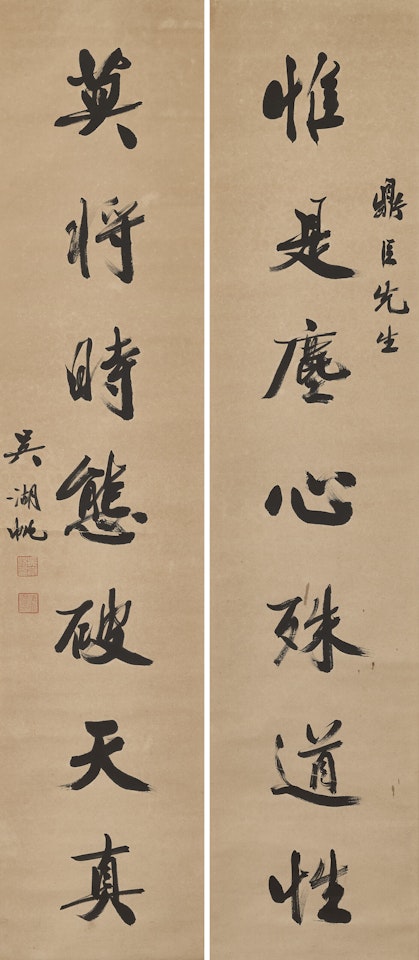 鼎臣先生
惟是塵心殊道性
莫將時態破天真
吳湖帆